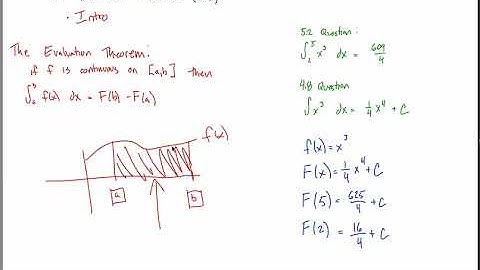 • Intro
The Evaluation Theorem:
if f is continuous on [a,b] then
∫₂⁵ f(x) dx = F(b) - F(a)
f(x)
a
b
5.2 Question:
∫₂⁵ x³ dx = 609/4
4.8 Question
∫ x³ dx = 1/4 x⁴ + C
f(x) = x³
F(x) = 1/4 x⁴ + C
F(5) = 625/4 + C
F(2) = 16/4 + C